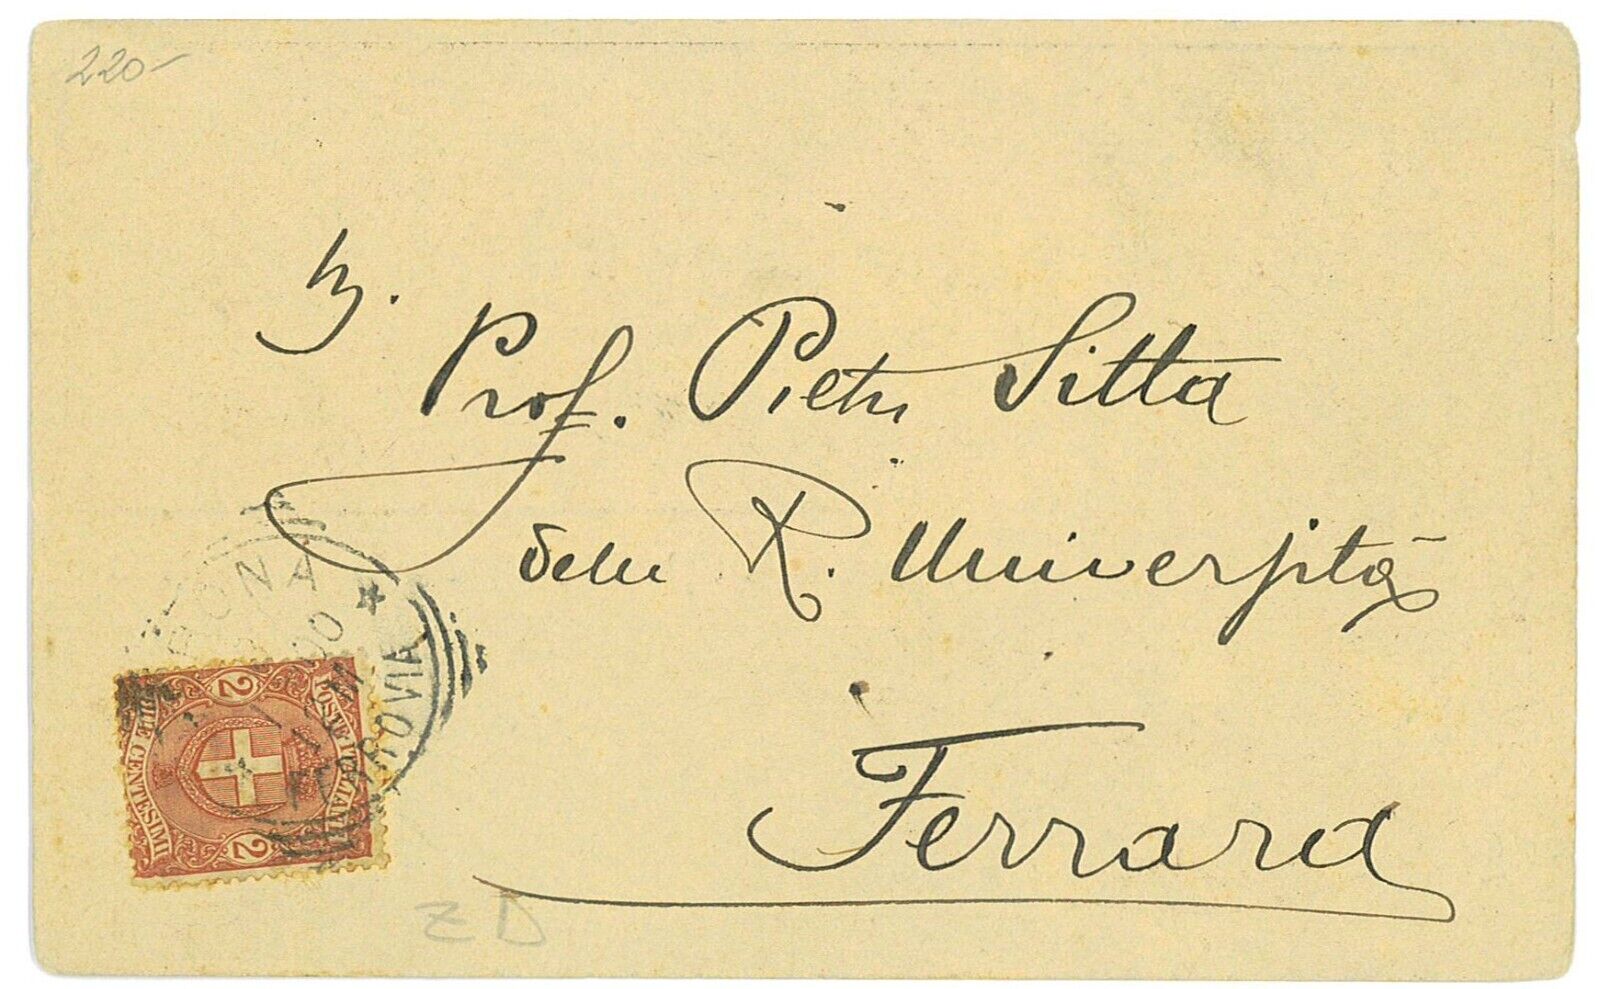 220-
Prof. Pietro Sitta
della R. Università
Ferrara
FERROVIA
2 2
POSTE ITALIANE
DUE CENTESIMI
ZD